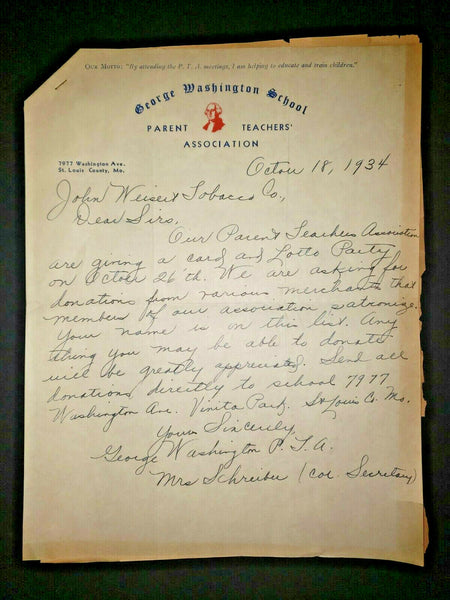 OUR MOTTO: "By attending the P. T. A. meetings, I am helping to educate and train children."
George Washington School
PARENT TEACHERS'
ASSOCIATION
7977 Washington Ave.
St. Louis County, Mo.
Octoer 18, 1934
John Weisert Tobacco Co,
Dear Sirs,
Our Parent Teachers Association
are giving a card and Lotto Party
on Octoer 26'th. We are asking for
donations from various merchants that
members of our association patronize.
Your name is on this list. Any
thing you may be able to donate
will be greatly appreciated. Send all
donations directly to school 7977
Washington Ave. Vinita Park. St Louis Co. Mo.
Yours Sincerely
George Washington P.T.A.
Mrs Schreiber (cor. Secretary)